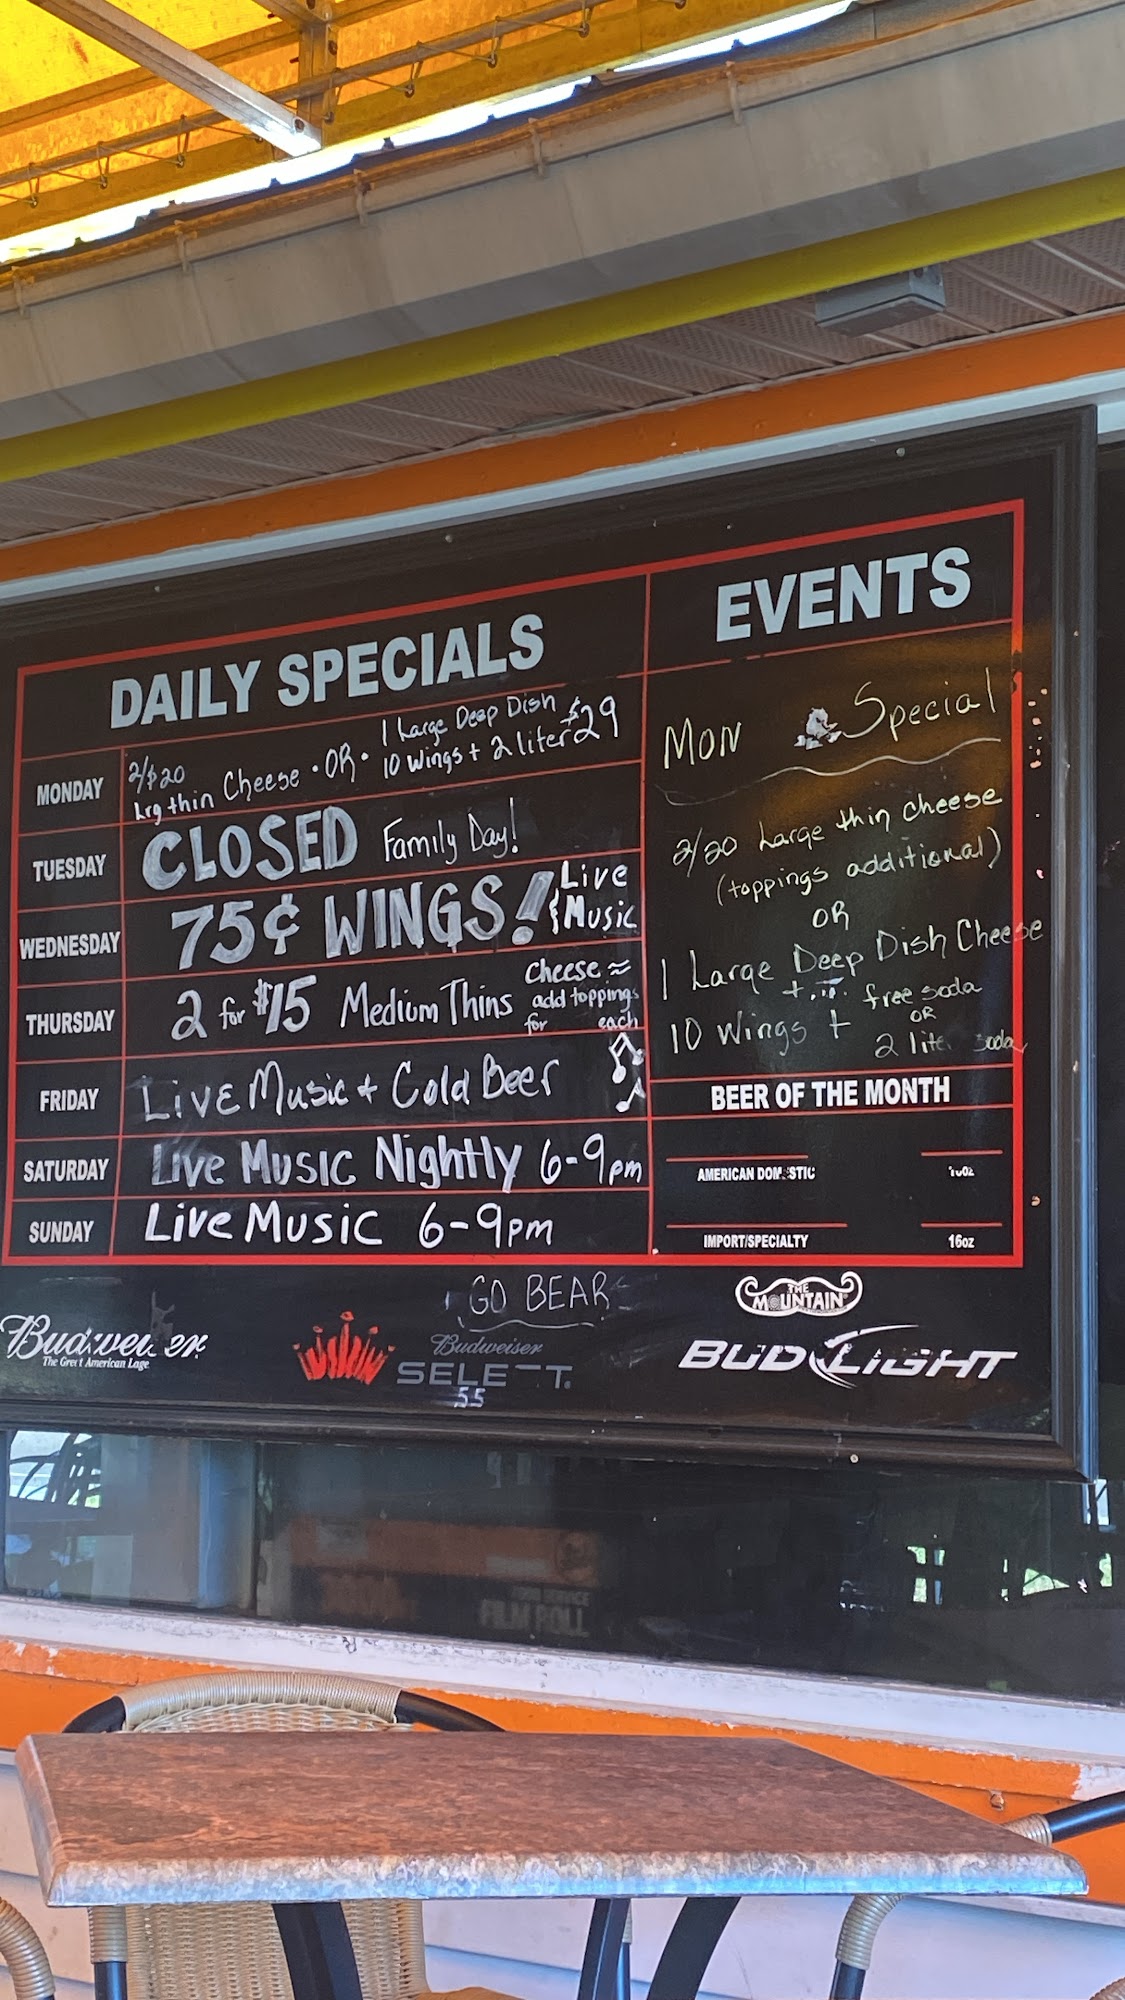 DAILY SPECIALS
MONDAY
2/$20
Lrg thin Cheese · OR ·
1 Large Deep Dish
10 Wings + 2 liter $29
TUESDAY
CLOSED Family Day!
WEDNESDAY
75¢ WINGS! & Live
Music
THURSDAY
2 for $15 Medium Thins
Cheese ≈
add toppings
for each
FRIDAY
Live Music + Cold Beer
SATURDAY
Live Music Nightly 6-9pm
SUNDAY
Live Music 6-9pm
EVENTS
Mon Special
2/20 Large thin cheese
(toppings additional)
OR
1 Large Deep Dish Cheese
+
10 Wings + free soda
OR
2 lite soda
BEER OF THE MONTH
AMERICAN DOMESTIC 16oz
IMPORT/SPECIALTY 16oz
GO BEARS
Budweiser
The Great American Lager
Budweiser
SELECT.
55
THE
MOUNTAIN
BUD LIGHT
FILM ROLL